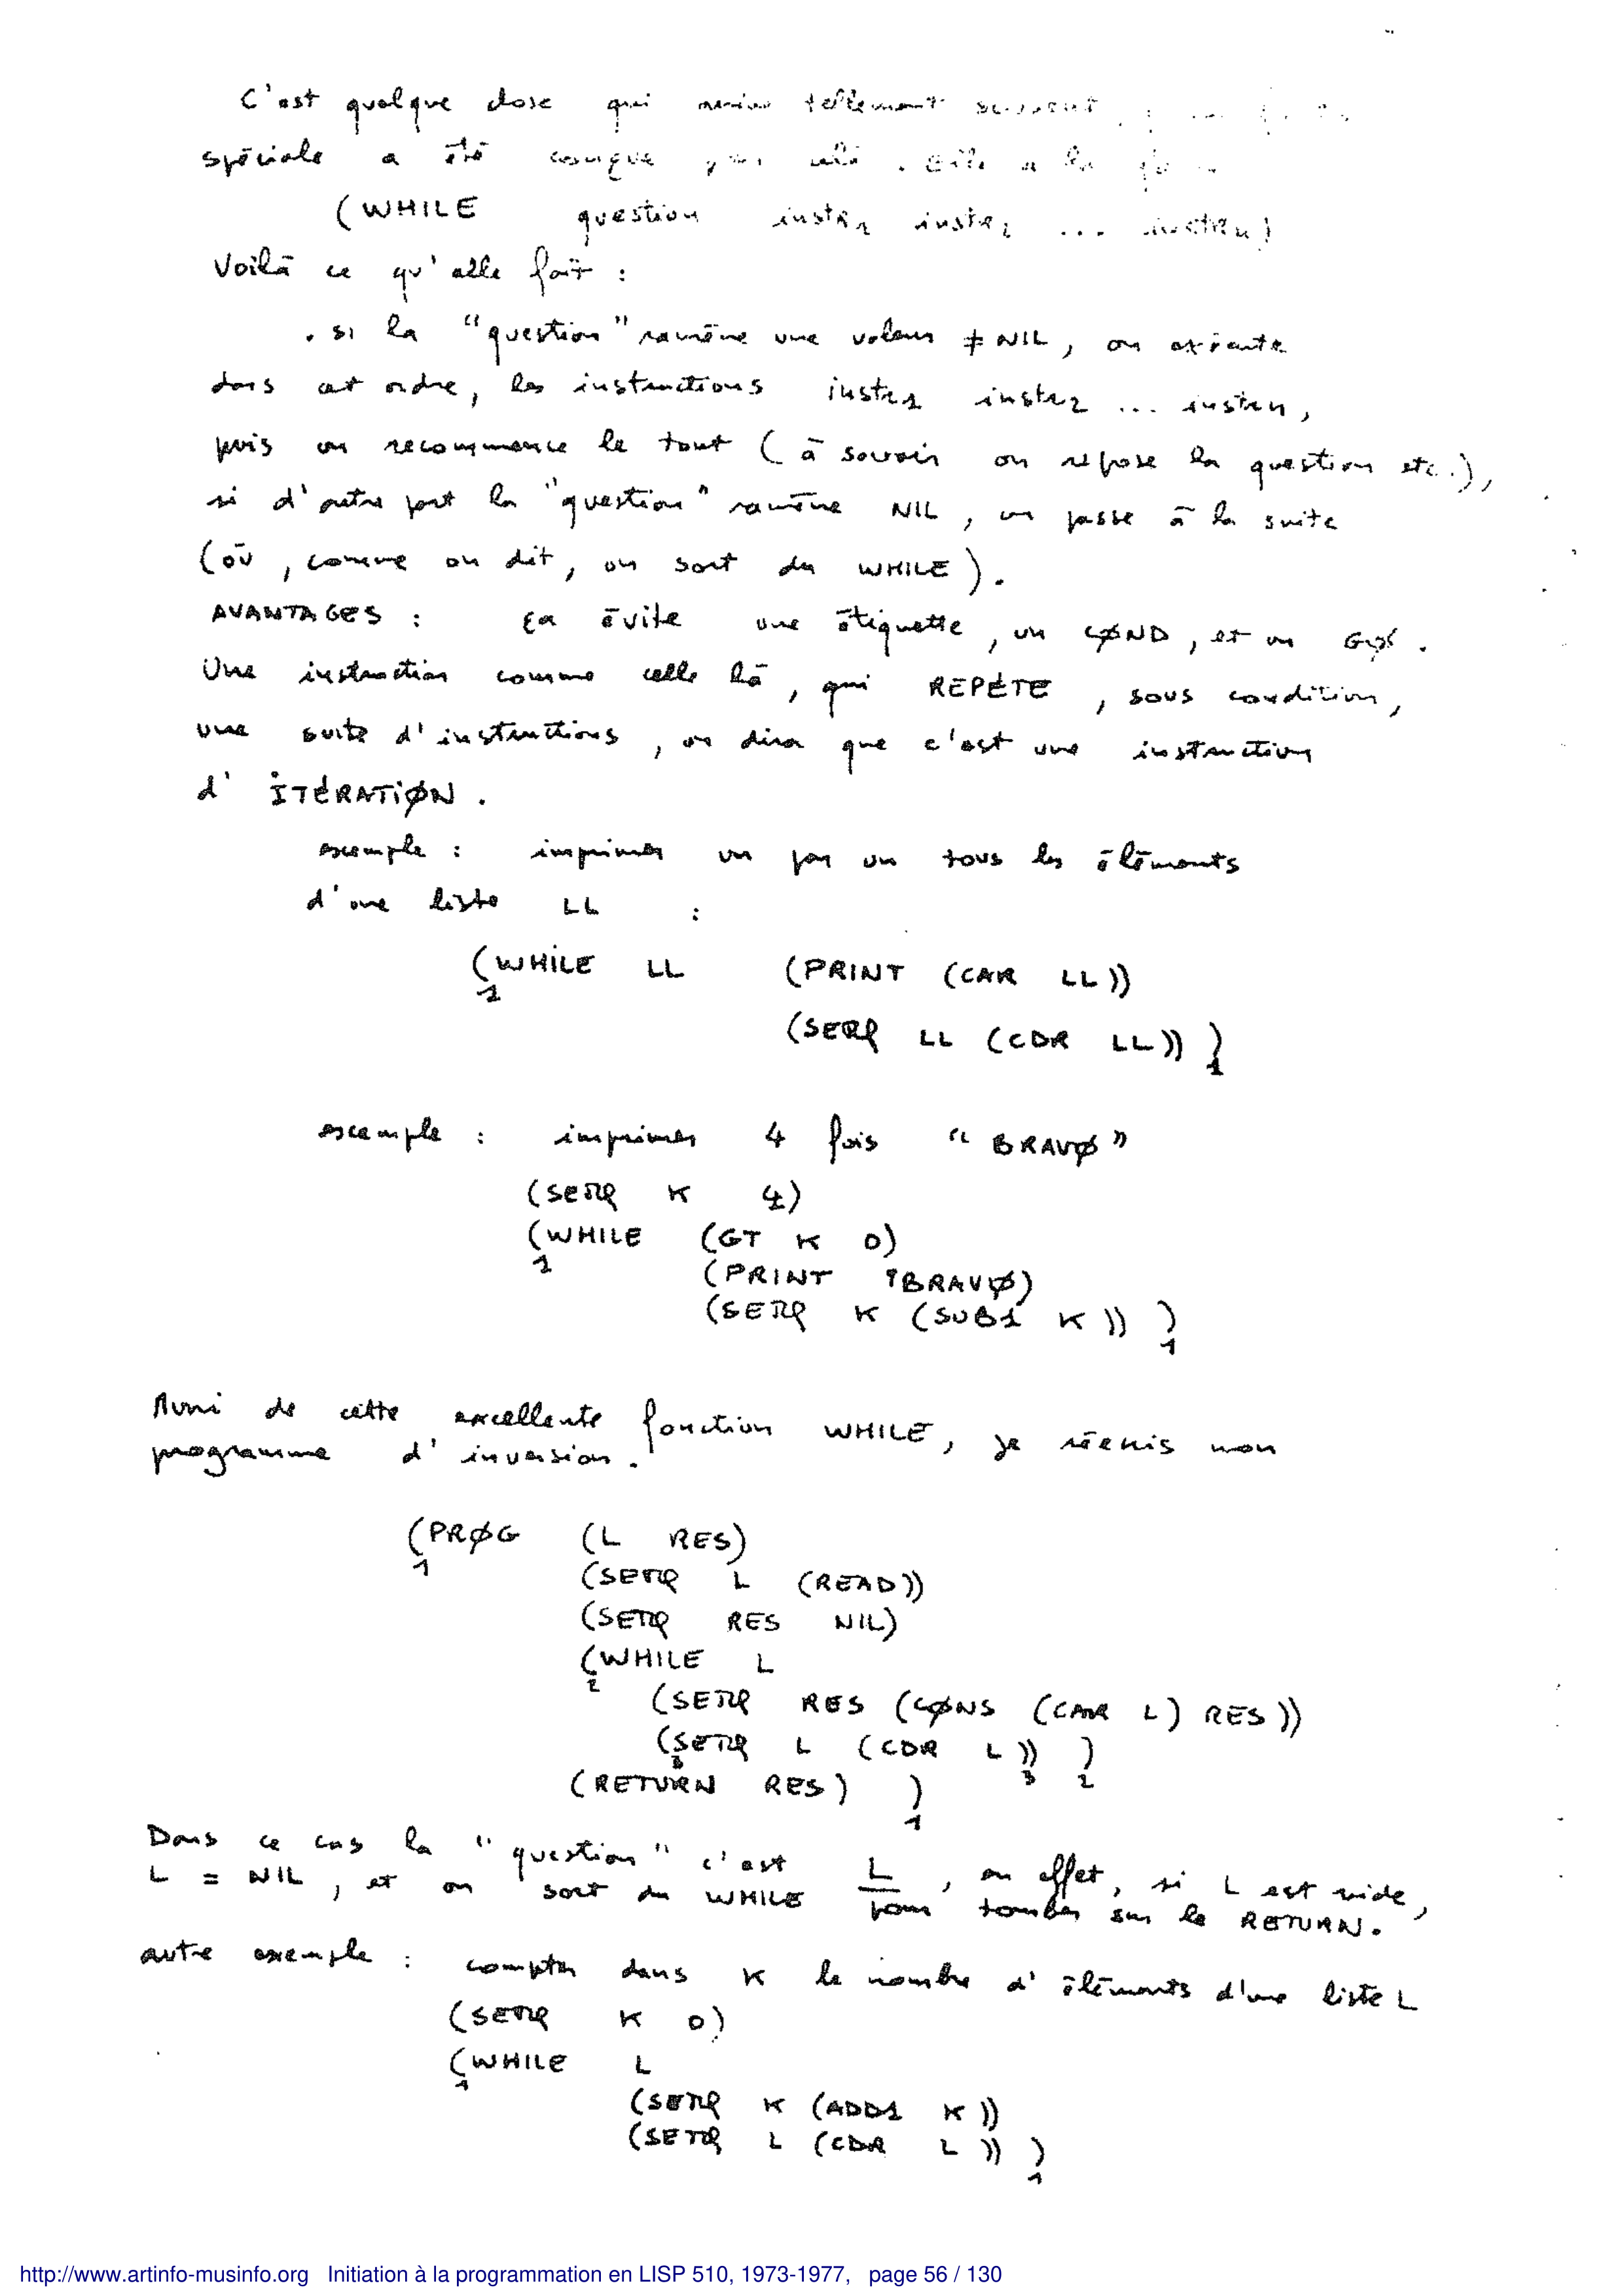 C'est quelque chose qui arrive tellement souvent,
spéciale a été conçue pour cela. Elle a la
(WHILE question instr1 instr2 ... instrn)
Voilà ce qu'elle fait :
. si la "question" ramène une valeur ≠ NIL, on exécute
dans cet ordre, les instructions instr1 instr2 ... instrn,
puis on recommence le tout (à savoir on repose la question etc.),
si d'autre part la "question" ramène NIL, on passe à la suite
(où, comme on dit, on sort du WHILE).
AVANTAGES : ça évite une étiquette, un CØND, et un GØ.
Une instruction comme celle là, qui REPÉTE, sous condition,
une suite d'instructions, on dira que c'est une instruction
d' ITÉRATIØN.
exemple : imprimer un par un tous les éléments
d'une liste LL :
(WHILE LL (PRINT (CAR LL))
1
(SETQ LL (CDR LL)) )
1
exemple : imprimer 4 fois "BRAVØ"
(SETQ K 4)
(WHILE (GT K 0)
1
(PRINT 'BRAVØ)
(SETQ K (SUB1 K)) )
1
Muni de cette excellente fonction WHILE, je réécris mon
programme d'inversion.
(PRØG (L RES)
1
(SETQ L (READ))
(SETQ RES NIL)
(WHILE L
2
(SETQ RES (CØNS (CAR L) RES))
(SETQ L (CDR L)) )
3 3 2
(RETURN RES) )
1
Dans ce cas la "question" c'est L, en effet, si L est vide,
L = NIL, et on sort du WHILE pour tomber sur le RETURN.
autre exemple : compter dans K le nombre d'éléments d'une liste L
(SETQ K 0)
(WHILE L
1
(SETQ K (ADD1 K))
(SETQ L (CDR L)) )
1
http://www.artinfo-musinfo.org Initiation à la programmation en LISP 510, 1973-1977, page 56 / 130